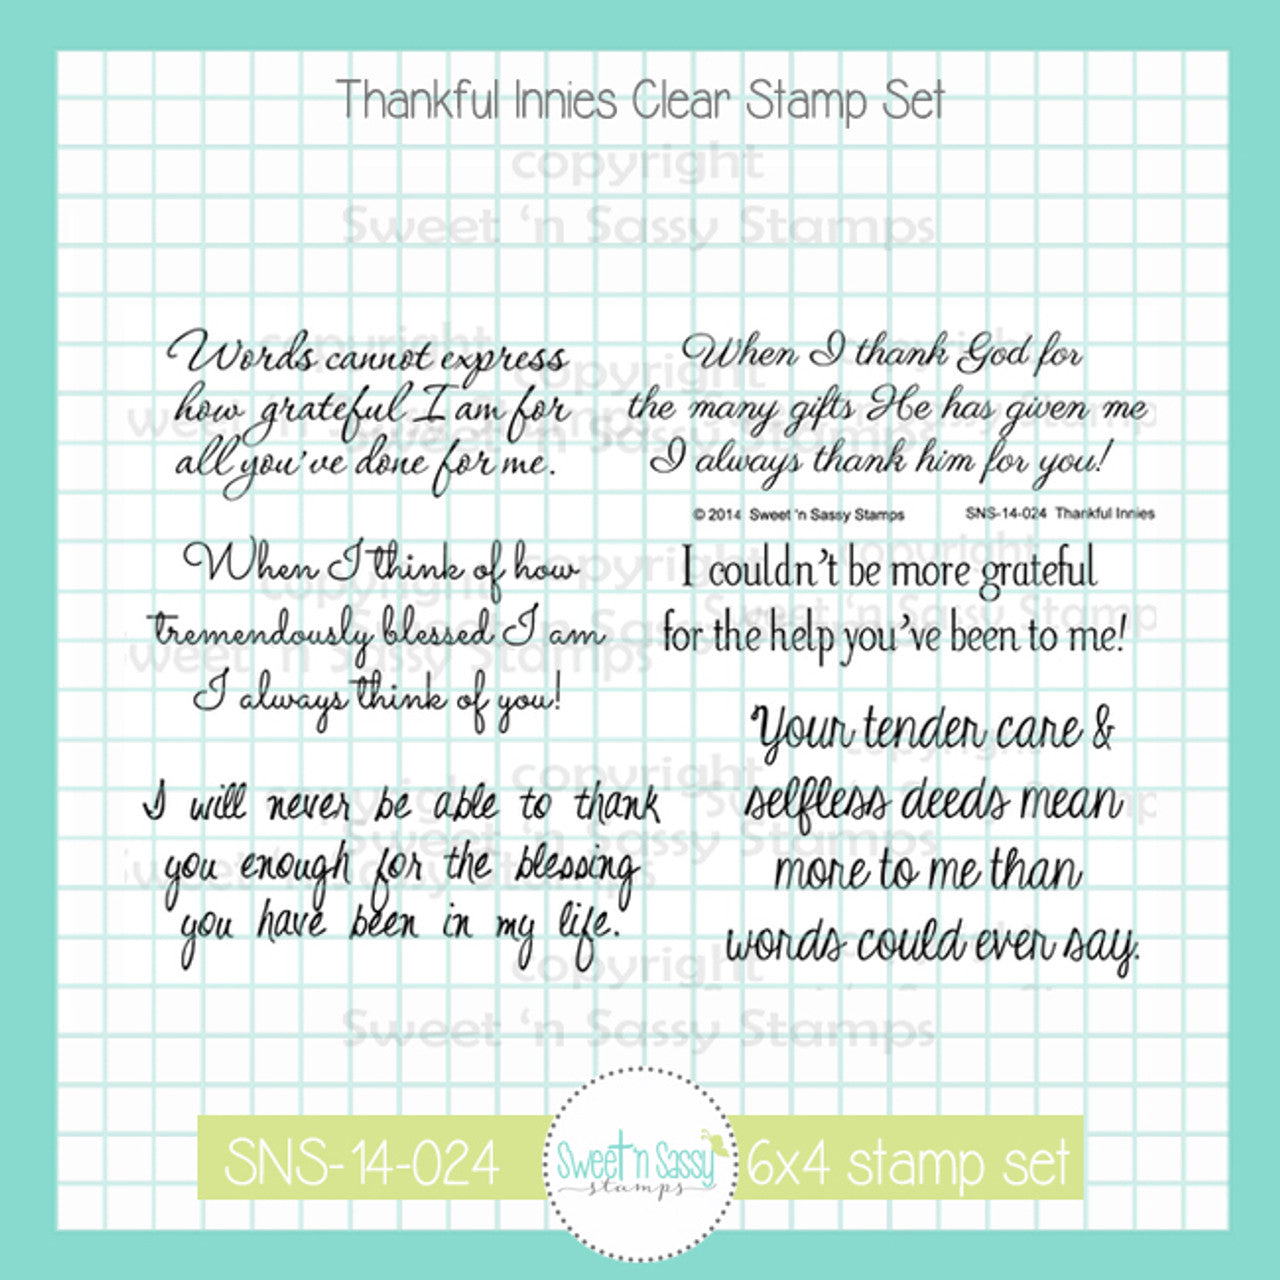 Thankful Innies Clear Stamp Set
copyright
Sweet 'n Sassy Stamps
Words cannot express
how grateful I am for
all you've done for me.
When I thank God for
the many gifts He has given me
I always thank him for you!
© 2014 Sweet 'n Sassy Stamps
SNS-14-024 Thankful Innies
When I think of how
tremendously blessed I am
I always think of you!
I couldn't be more grateful
for the help you've been to me!
I will never be able to thank
you enough for the blessing
you have been in my life.
Your tender care &
selfless deeds mean
more to me than
words could ever say.
copyright
Sweet 'n Sassy Stamps
SNS-14-024
Sweet 'n Sassy
stamps
6x4 stamp set